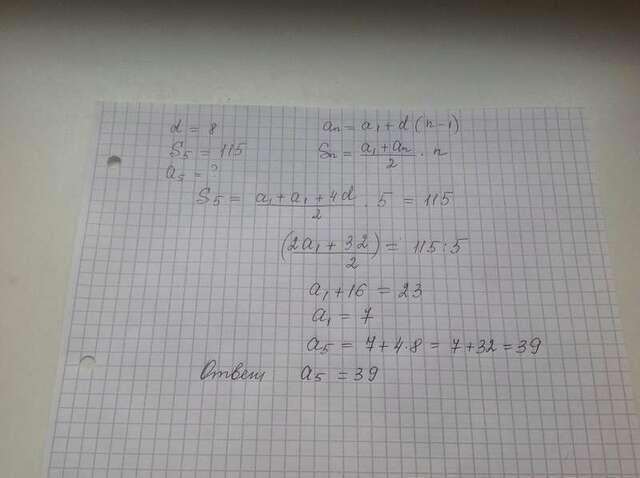 d = 8
aₙ = a₁ + d (n-1)
S₅ = 115
Sₙ = (a₁ + aₙ)/2 · n
a₅ = ?
S₅ = (a₁ + a₁ + 4d)/2 · 5 = 115
((2a₁ + 32)/2) = 115:5
a₁ + 16 = 23
a₁ = 7
a₅ = 7 + 4·8 = 7 + 32 = 39
Ответ a₅ = 39